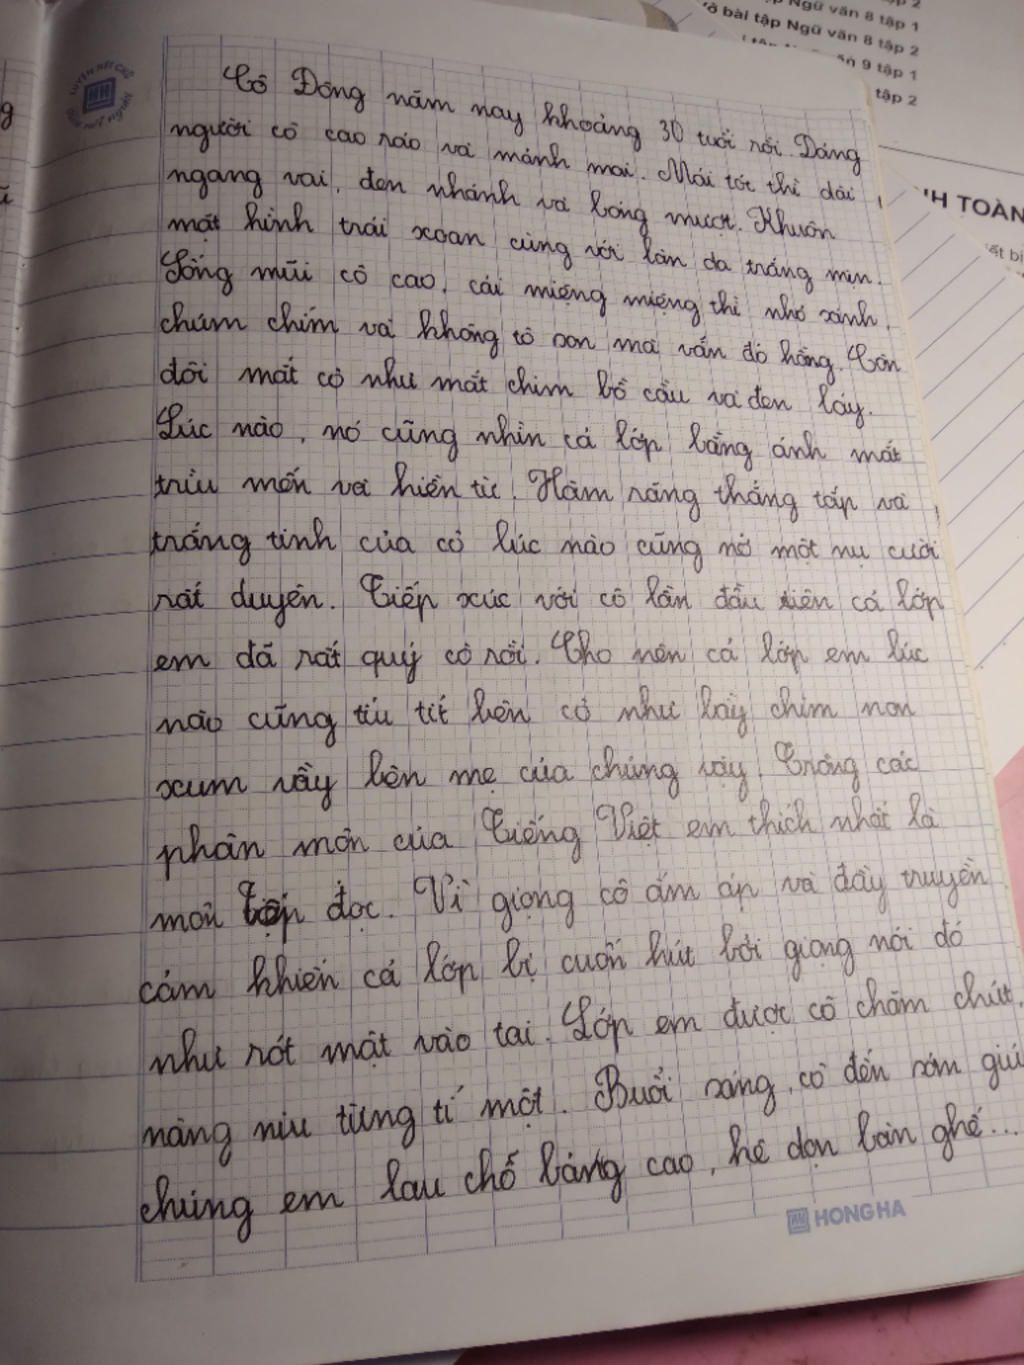 tập 2
Ngữ văn 8 tập 1
ở bài tập Ngữ văn 8 tập 2
9 tập 1
tập 2
H TOÁN
ết bị
LUYỆN NÉT CHỮ
RÈN NẾT NGƯỜI
Cô Đông năm nay khoảng 30 tuổi rồi. Dáng
người cô cao ráo và mảnh mai. Mái tóc thì dài
ngang vai, đen nhánh và bóng mượt. Khuôn
mặt hình trái xoan cùng với làn da trắng mịn.
Sống mũi cô cao, cái miệng miệng thì nhỏ xinh,
chúm chím và không tô son mà vẫn đỏ hồng. Còn
đôi mắt cô như mắt chim bồ câu và đen láy.
Lúc nào, nó cũng nhìn cả lớp bằng ánh mắt
trìu mến và hiền từ. Hàm răng thẳng tắp và
trắng tinh của cô lúc nào cũng nở một nụ cười
rất duyên. Tiếp xúc với cô lần đầu tiên cả lớp
em đã rất quý cô rồi. Cho nên cả lớp em lúc
nào cũng tíu tít bên cô như bầy chim non
xum vầy bên mẹ của chúng vậy. Trong các
phân môn của Tiếng Việt em thích nhất là
môn Tập đọc. Vì giọng cô ấm áp và đầy truyền
cảm khiến cả lớp bị cuốn hút bởi giọng nói đó
như rót mật vào tai. Lớp em được cô chăm chút,
nâng niu từng tí một. Buổi sáng, cô đến sớm giú
chúng em lau chỗ bảng cao, kê dọn bàn ghế...
HONG HA